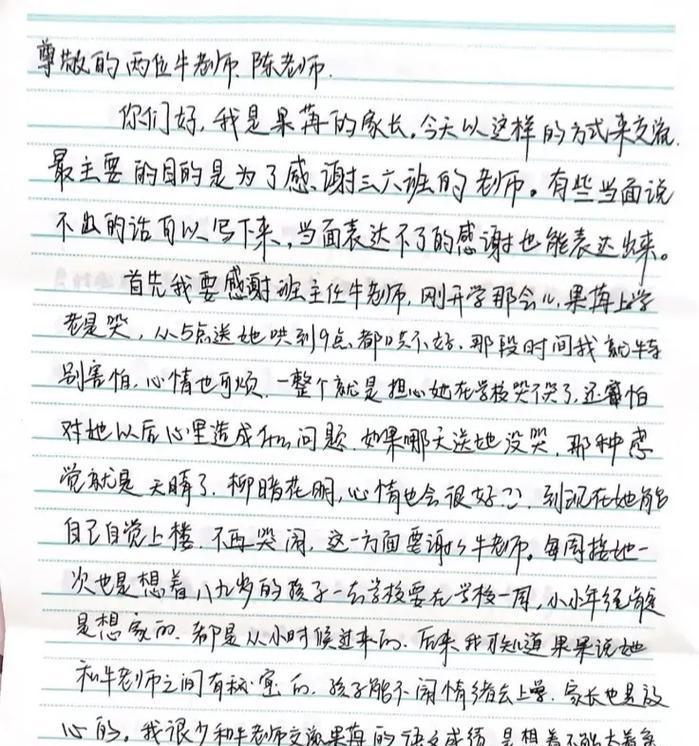 尊敬的两位牛老师、陈老师.
你们好,我是果苒的家长,今天以这样的方式来交流.
最主要的目的是为了感谢三六班的老师。有些当面说
不出的话可以写下来,当面表达不了的感谢也能表达出来。
首先我要感谢班主任牛老师,刚开学那会儿,果苒上学
老是哭,从5点送她哄到9点都哄不好.那段时间我就特
别害怕,心情也可烦.一整个就是担心她在学校哭不哭了,还害怕
对她以后心里造成什么问题.如果哪天送她没哭,那种感
觉就是天晴了.柳暗花明,心情也会很好.到现在她能
自己自觉上楼.不再哭闹,这一方面要谢谢牛老师。每周接她一
次也是想着八九岁的孩子一去学校要在学校一周,小小年纪肯定
是想家的.都是从小时候过来的.后来我才知道果果说她
和牛老师之间有秘密的.孩子能不闹情绪去上学.家长也是放
心的。我很少和牛老师交流果苒的语文成绩.是想着不能